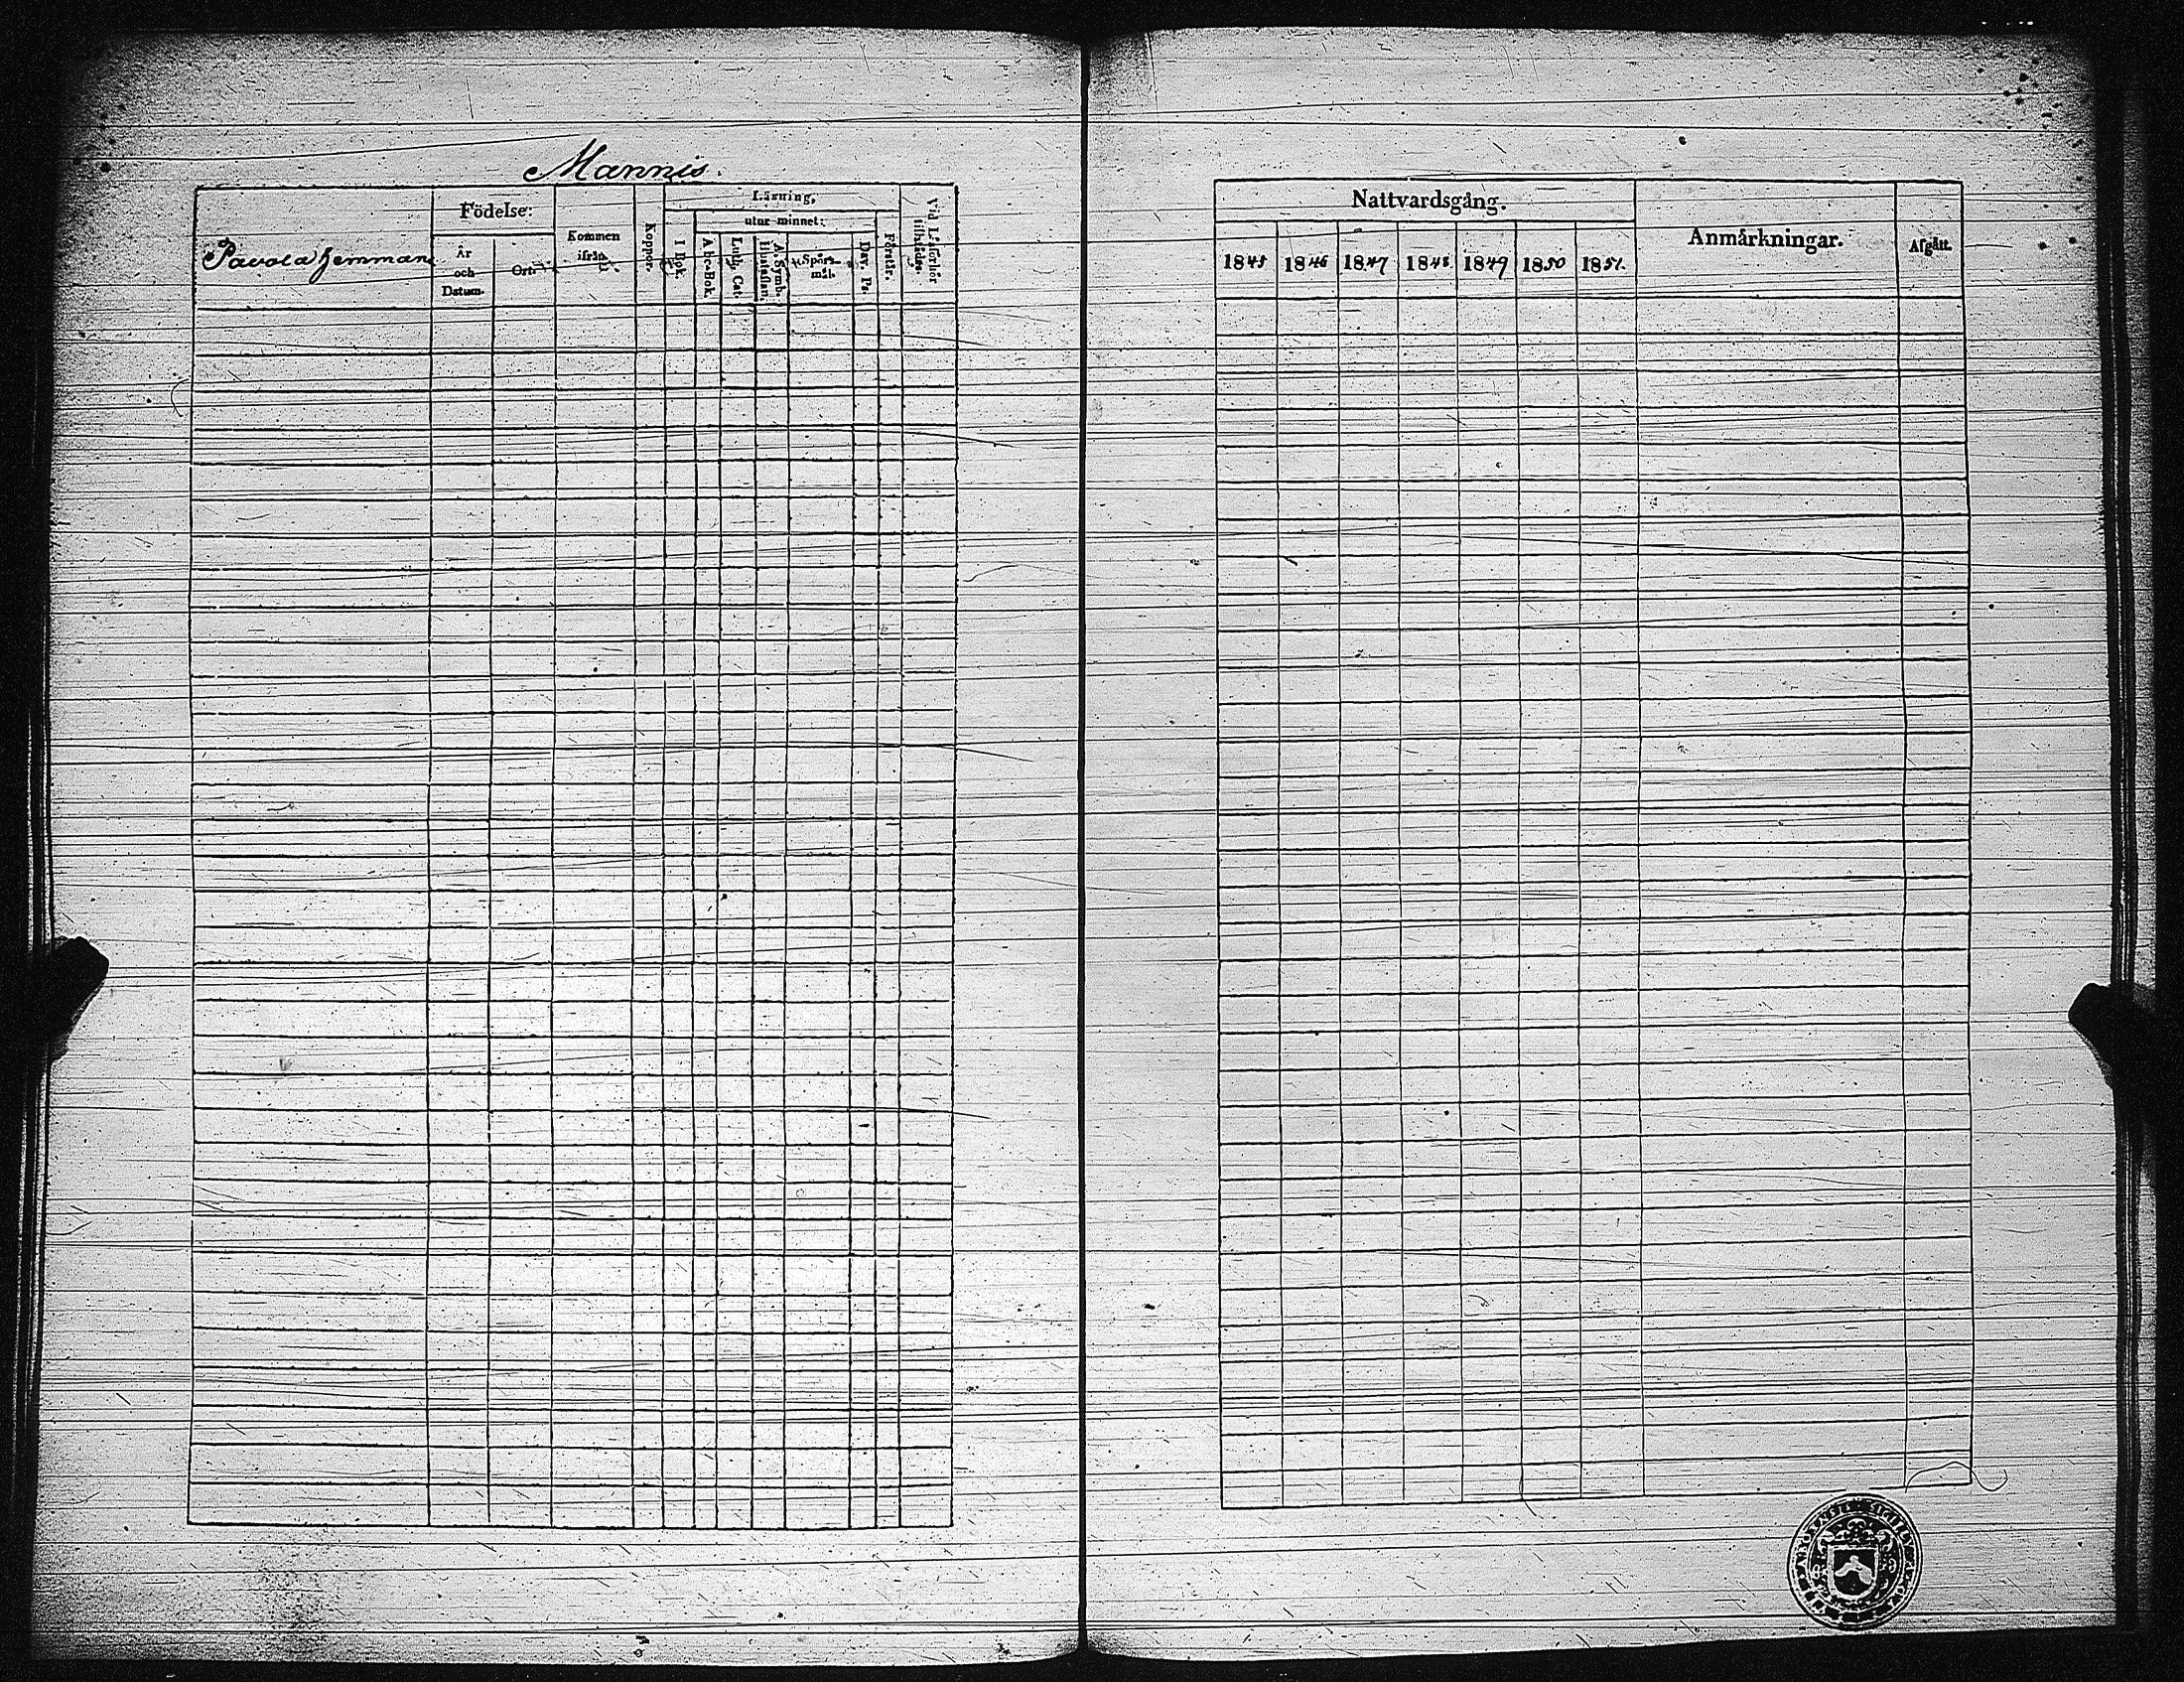 Mannis.
Pavola hemman
Födelse:
År
och
Datum.
Ort.
Kommen
ifrån
Koppor.
Läsning,
I Bok.
utur minnet:
Abc-Bok.
Luth. Cat.
A. Symb.
Hustaflan.
Spörs-
mål.
Dav. Ps.
Förstår.
Vid Läsförhör
tillstädes.
Nattvardsgång.
1845 1846 1847 1848 1849 1850 1851.
Anmärkningar.
Afgått.